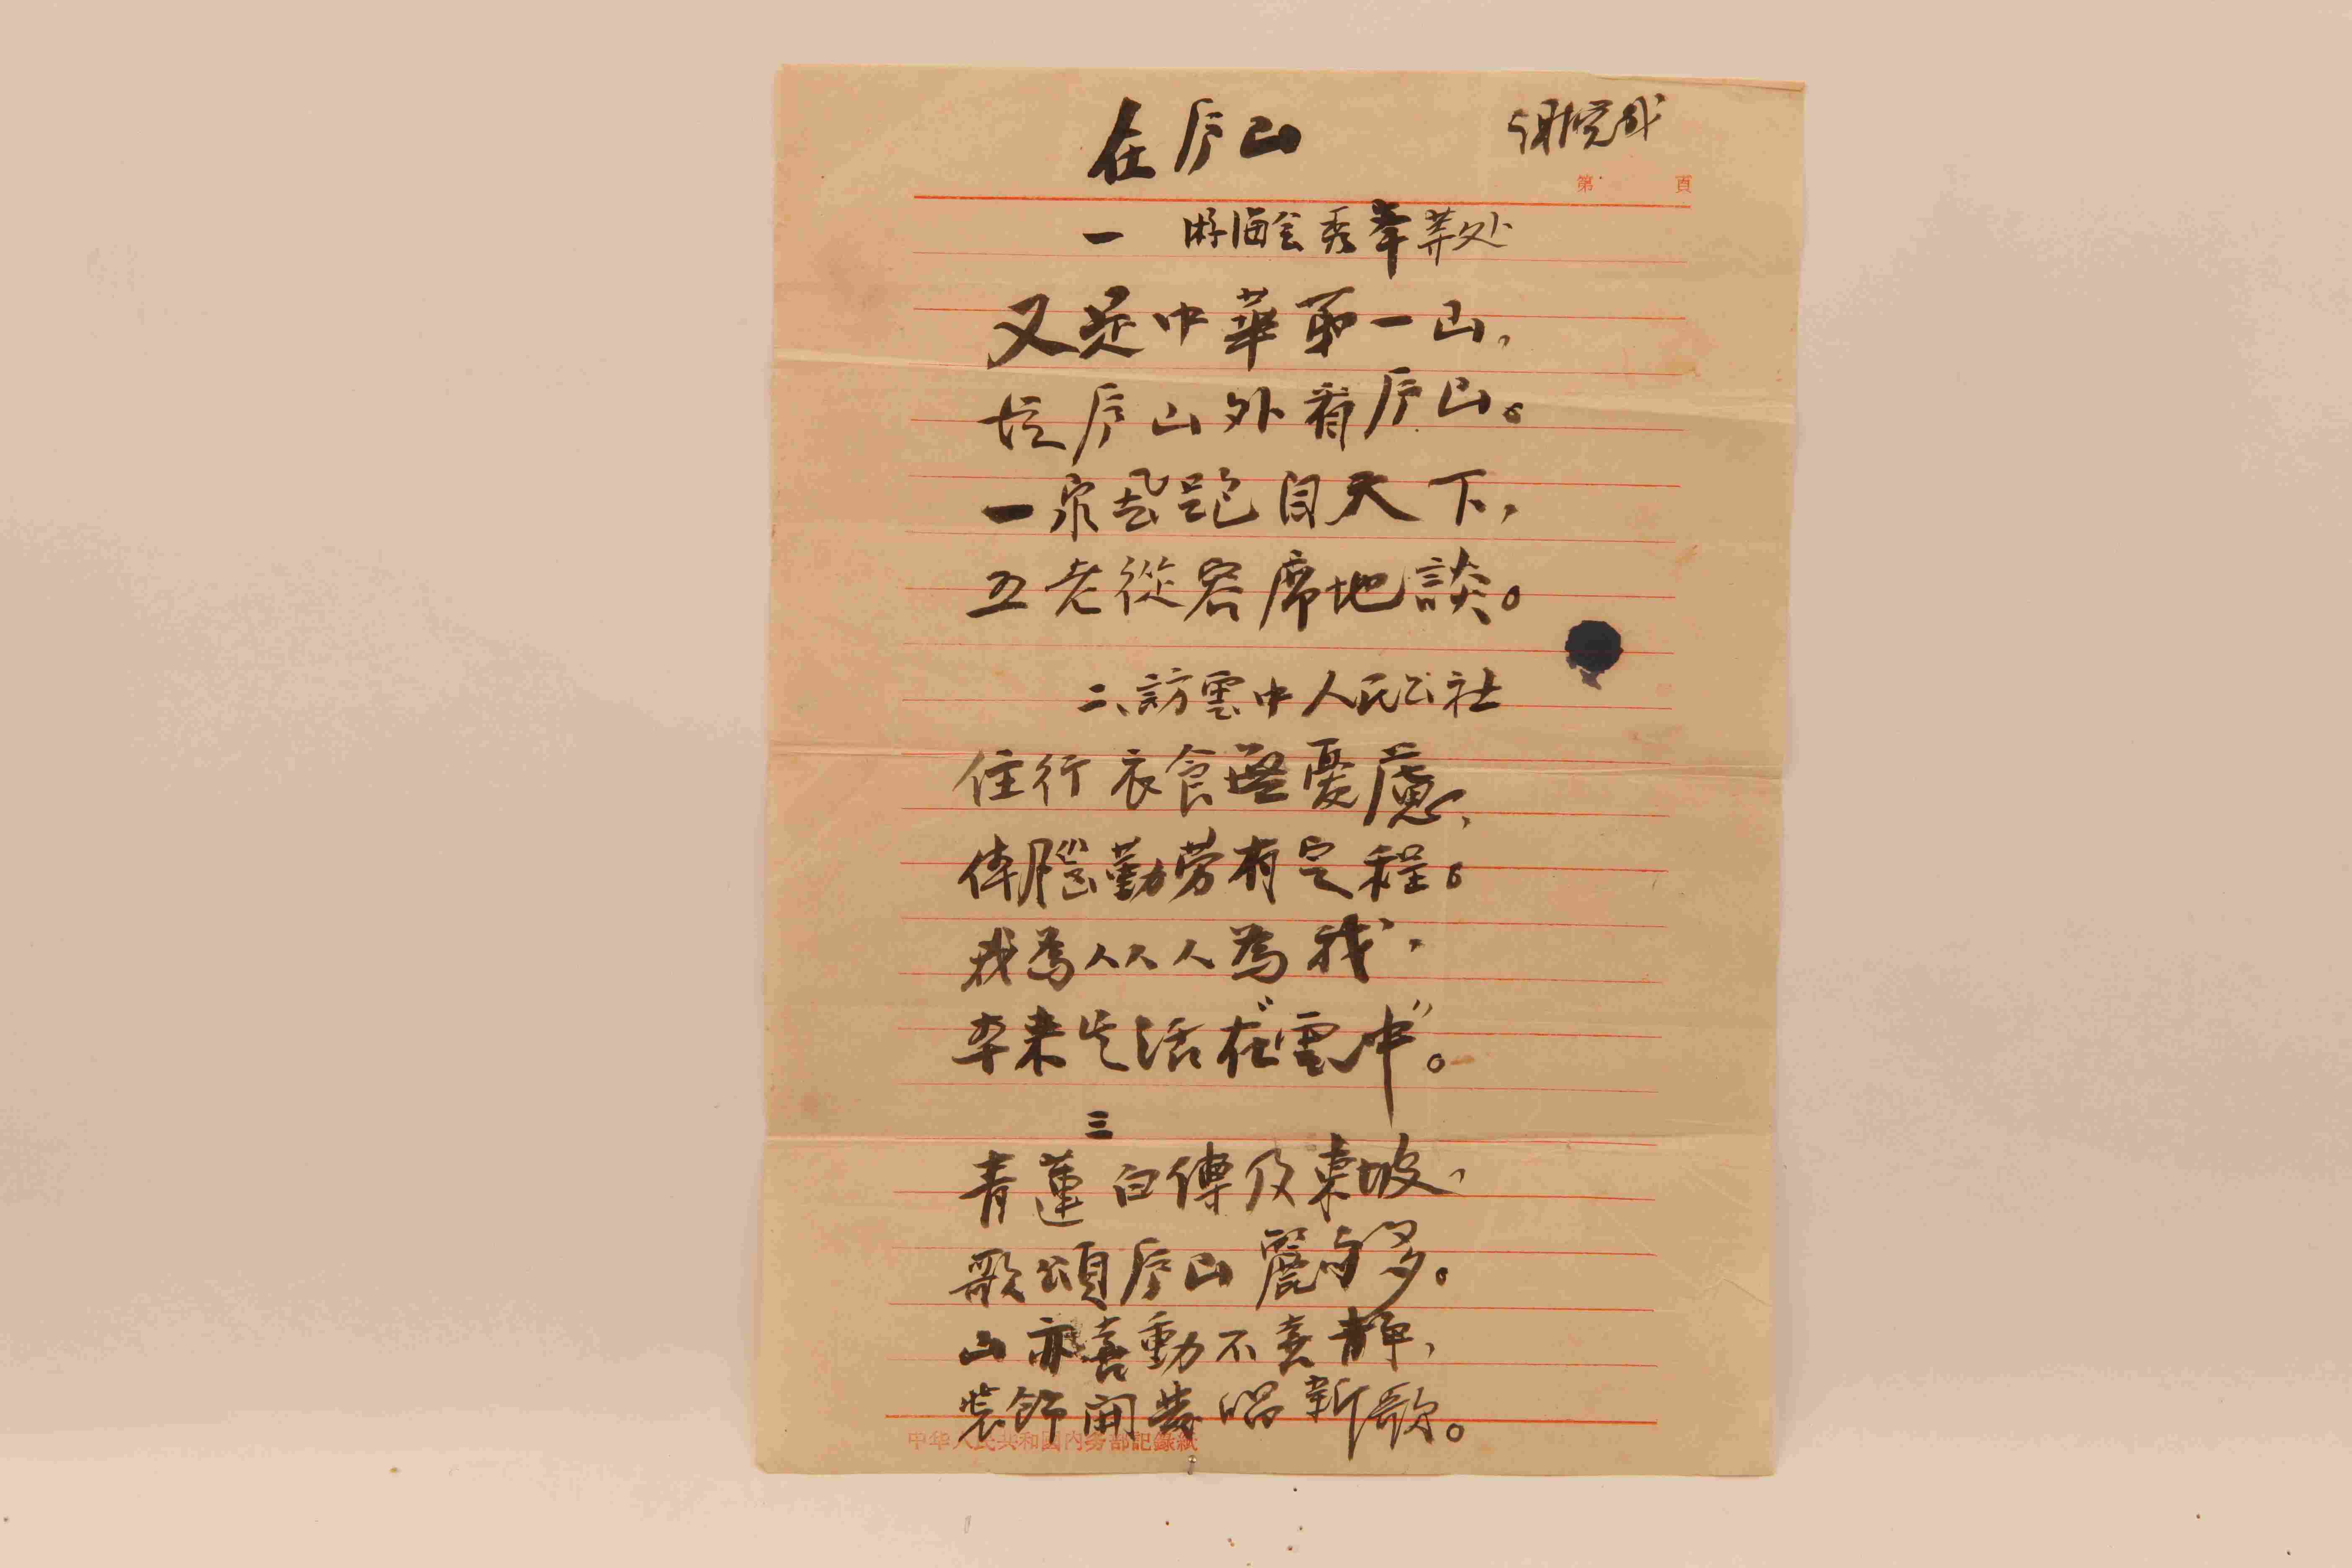 在庐山 谢觉哉
第 頁
一 游海会秀峯等处
又是中華第一山，
在庐山外看庐山。
一泉飛跑自天下，
五老從容席地談。
二、訪雲中人民公社
住行衣食無憂慮，
体腦勤劳有定程。
我為人人人為我，
本来生活在“雲中”。
三
青蓮白傅及東坡，
歌頌庐山麗句多。
山亦喜動不喜靜，
裝飾開裝唱新歌。
中华人民共和国内务部記錄紙